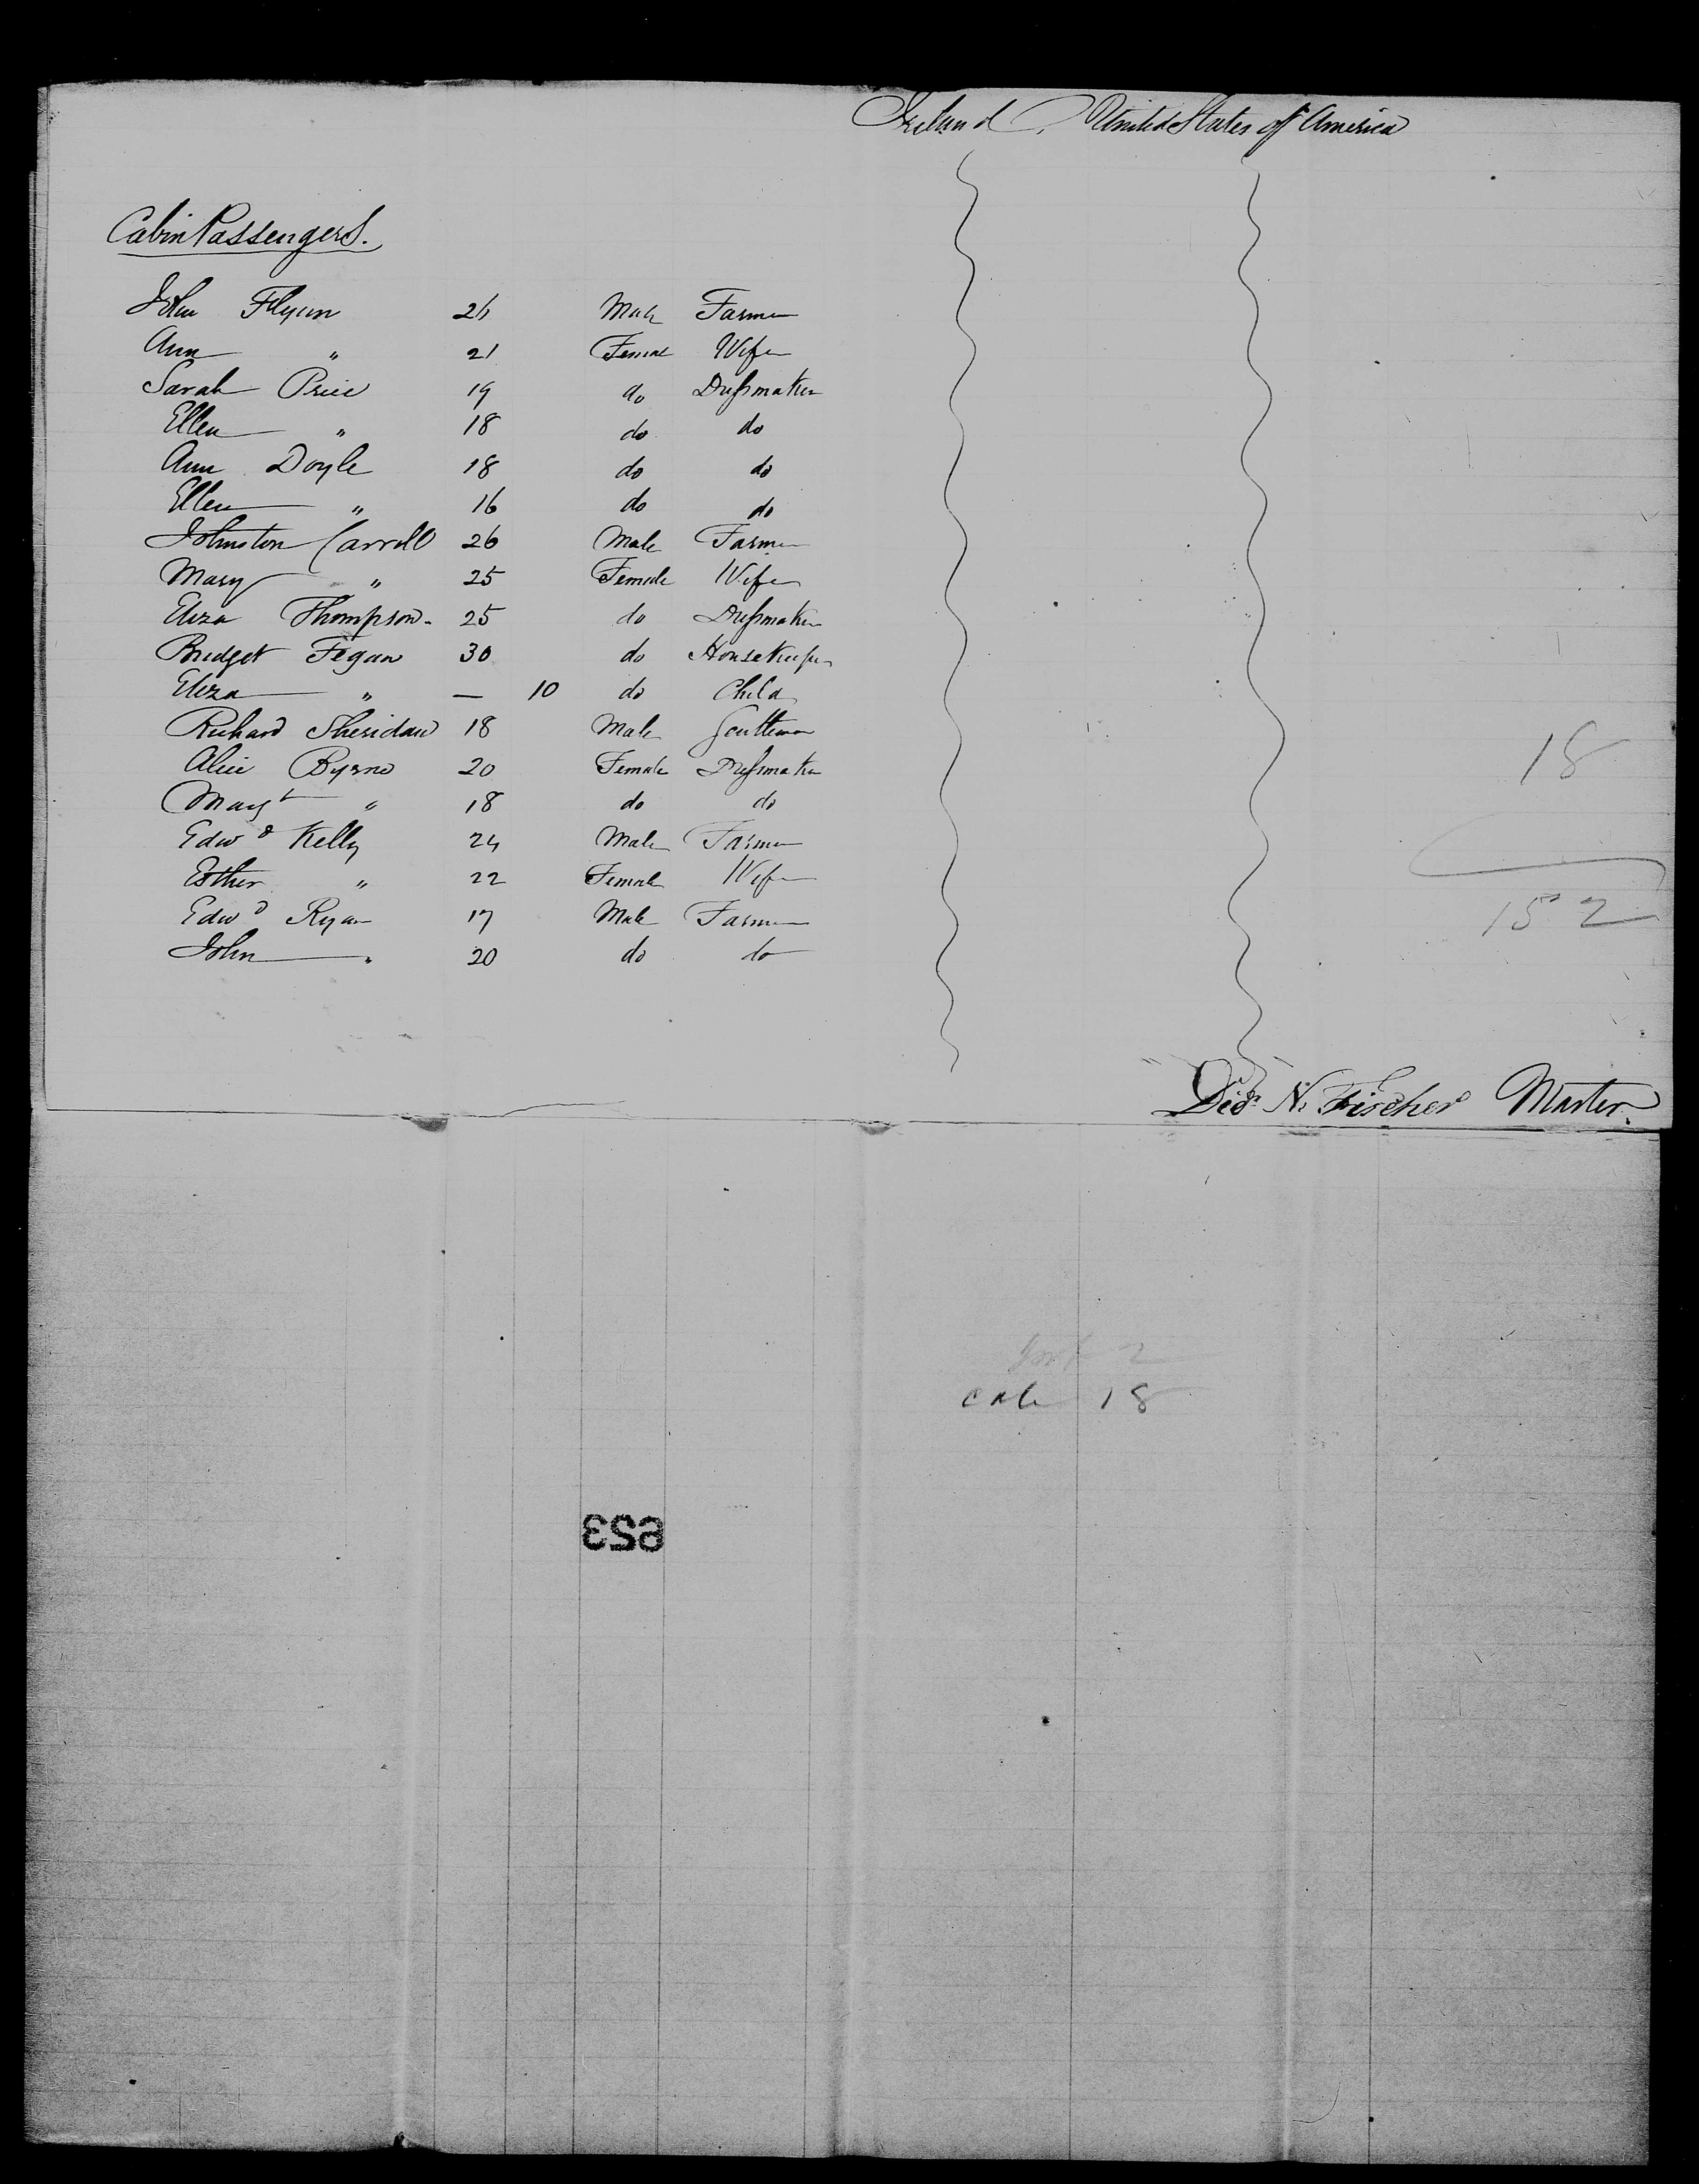 Ireland United States of America
Cabin Passengers.
John Flynn 26 Male Farmer
Ann " 21 Female Wife
Sarah Price 19 do Dressmaker
Ellen " 18 do do
Ann Doyle 18 do do
Ellen " 16 do do
Johnston Carroll 26 Male Farmer
Mary " 25 Female Wife
Eliza Thompson - 25 do Dressmaker
Bridget Fegan 30 do Housekeeper
Eliza " — 10 do Child
Richard Sheridan 18 Male Gentleman
Alice Byrne 20 Female Dressmaker
Margt " 18 do do
Edwd Kelly 24 Male Farmer
Esther " 22 Female Wife
Edwd Ryan 17 Male Farmer
John " 20 do do
18
152
N. Fischer Master.
2
18
623